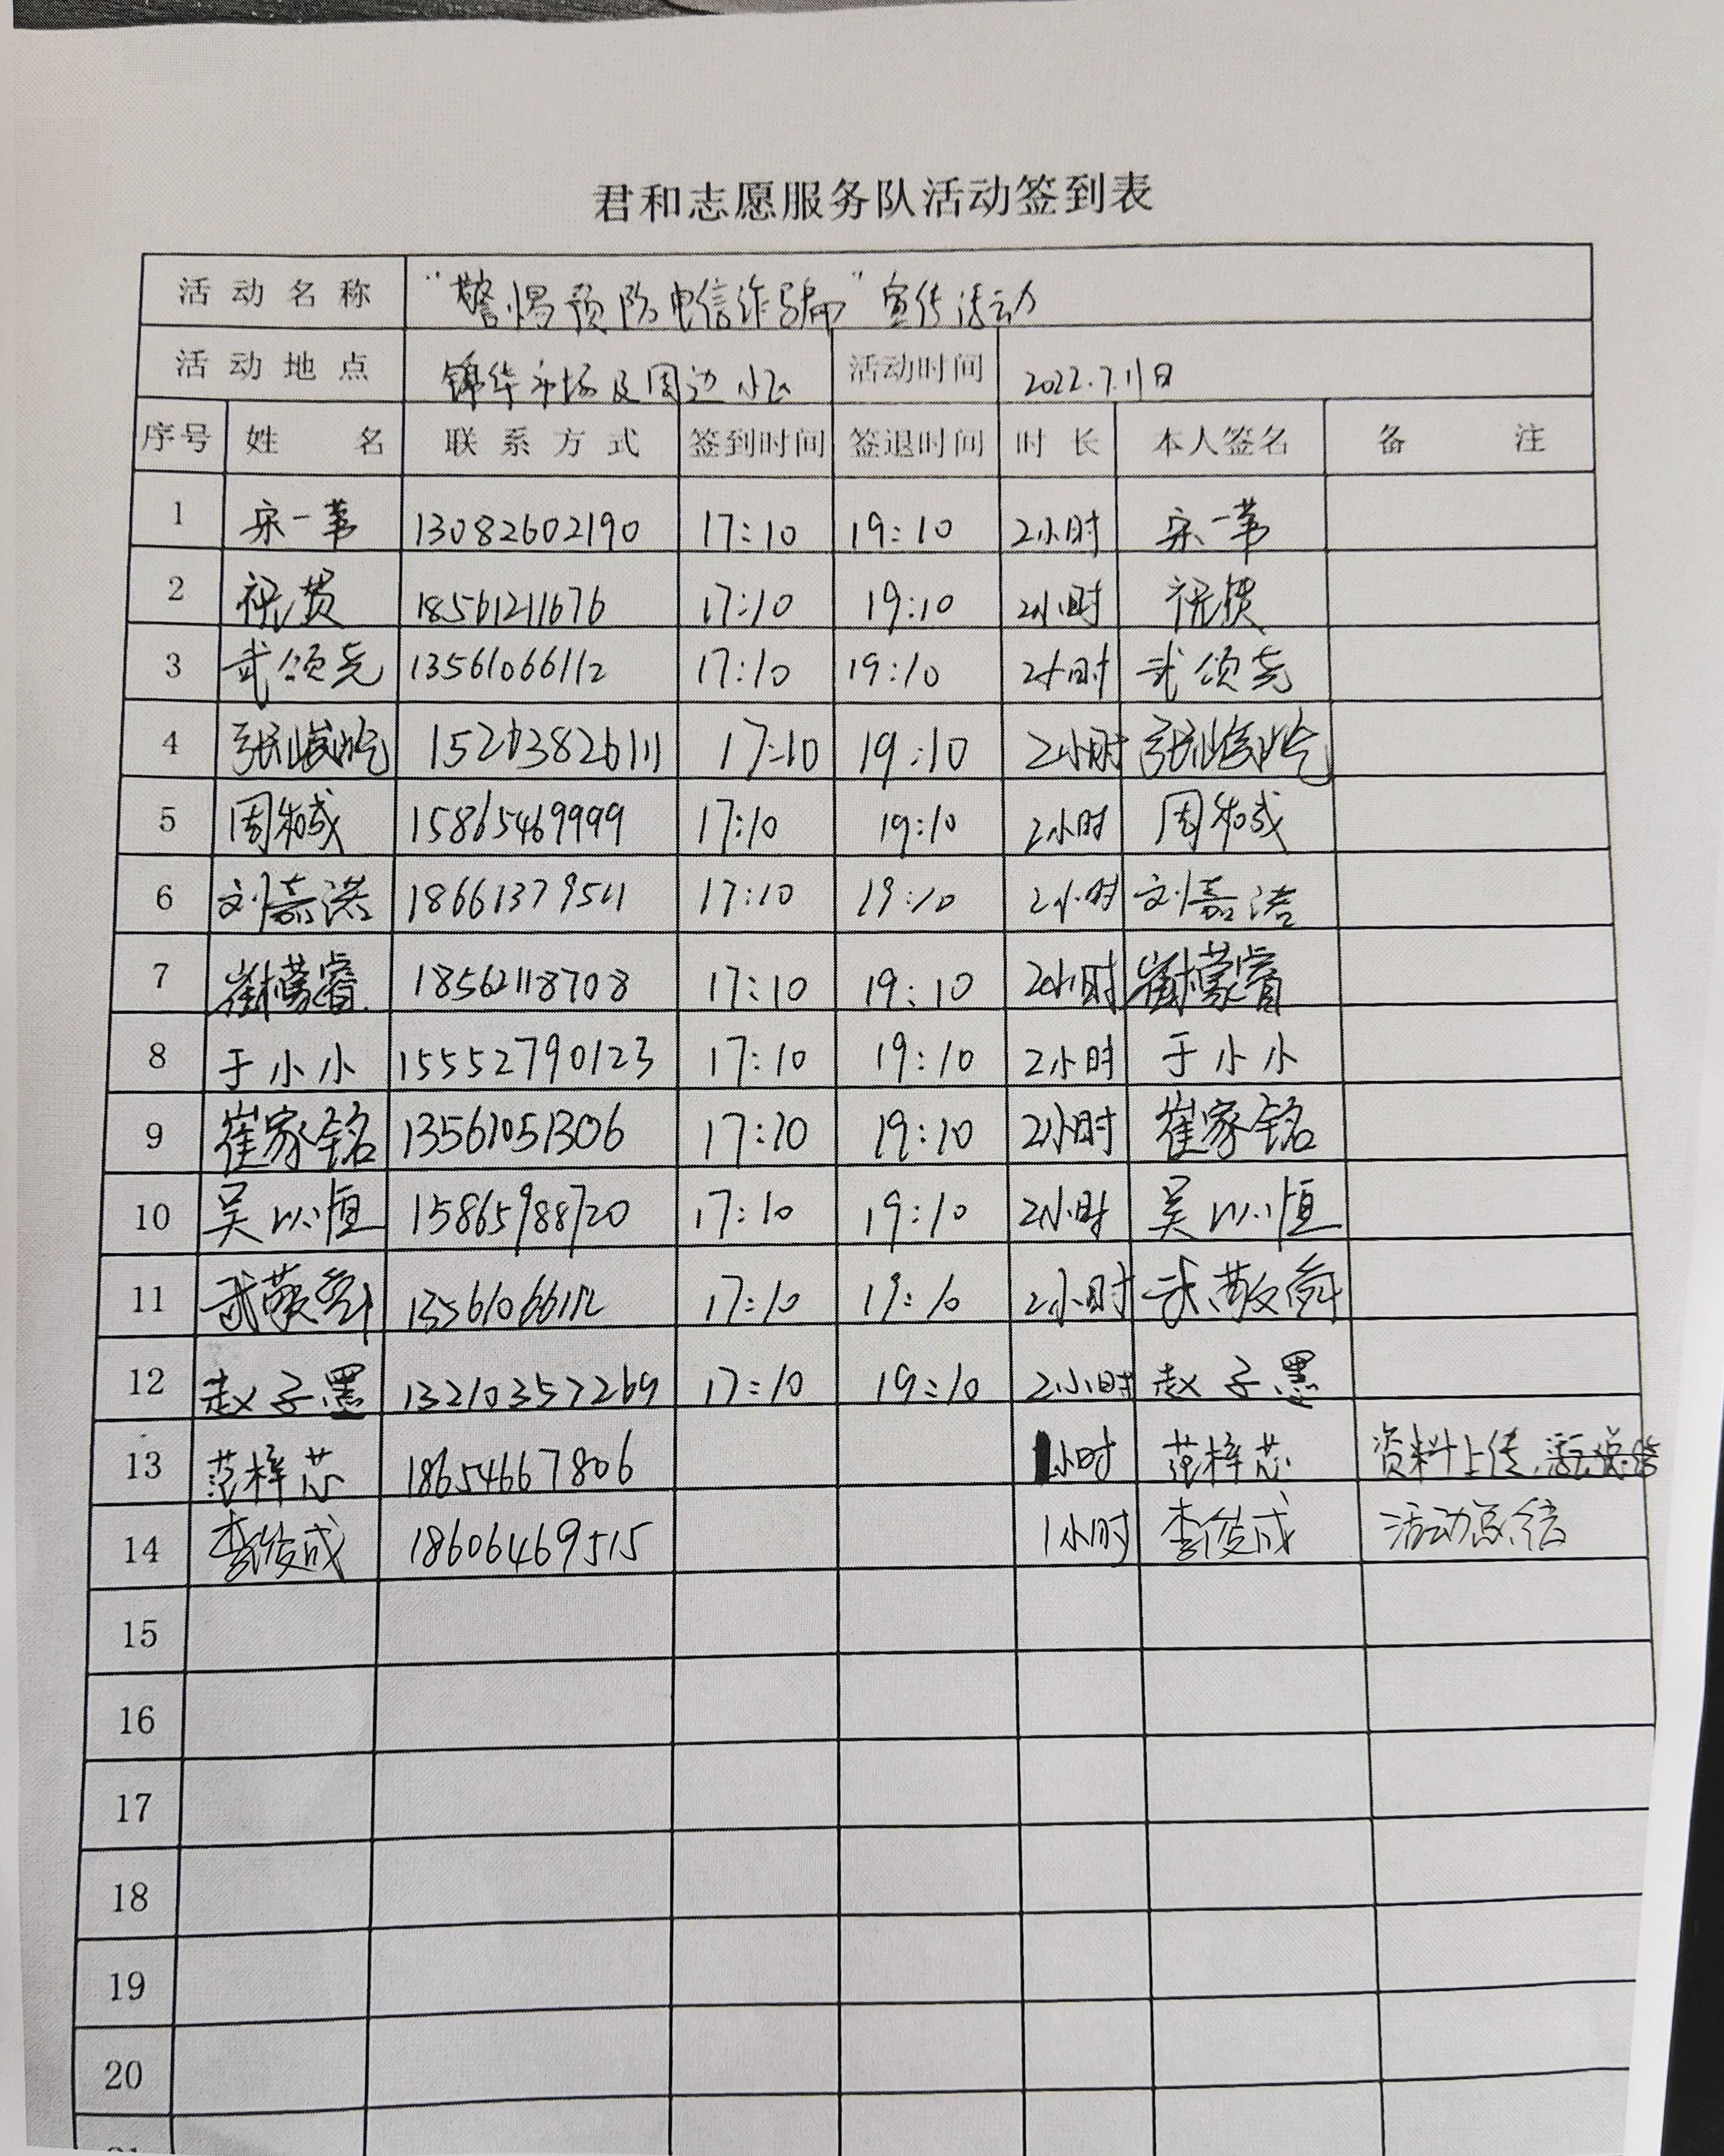 君和志愿服务队活动签到表
活动名称 "警惕预防电信诈骗"宣传活动
活动地点 锦华市场及周边小区 活动时间 2022.7.11日
序号 姓名 联系方式 签到时间 签退时间 时长 本人签名 备注
1 宋一苇 13082602190 17:10 19:10 2小时 宋一苇
2 祝贺 18561211676 17:10 19:10 2小时
3 武领先 13561066112 17:10 19:10 2小时 武领先
4 17:10 19:10 2小时
5 周楠彧 15865469999 17:10 19:10 2小时 周楠彧
6 刘嘉浩 18661379511 17:10 19:10 2小时 刘嘉浩
7 崔檬睿 18562118708 17:10 19:10 2小时 崔檬睿
8 于小小 15552790123 17:10 19:10 2小时 于小小
9 崔家铭 13561051306 17:10 19:10 2小时 崔家铭
10 吴以恒 15865988720 17:10 19:10 2小时 吴以恒
11 武敬舜 13561066112 17:10 19:10 2小时 武敬舜
12 赵子墨 13210357269 17:10 19:10 2小时 赵子墨
13 范梓芯 18654667806 1小时 范梓芯 资料上传
14 李俊成 18606469515 1小时 李俊成 活动总结
15
16
17
18
19
20